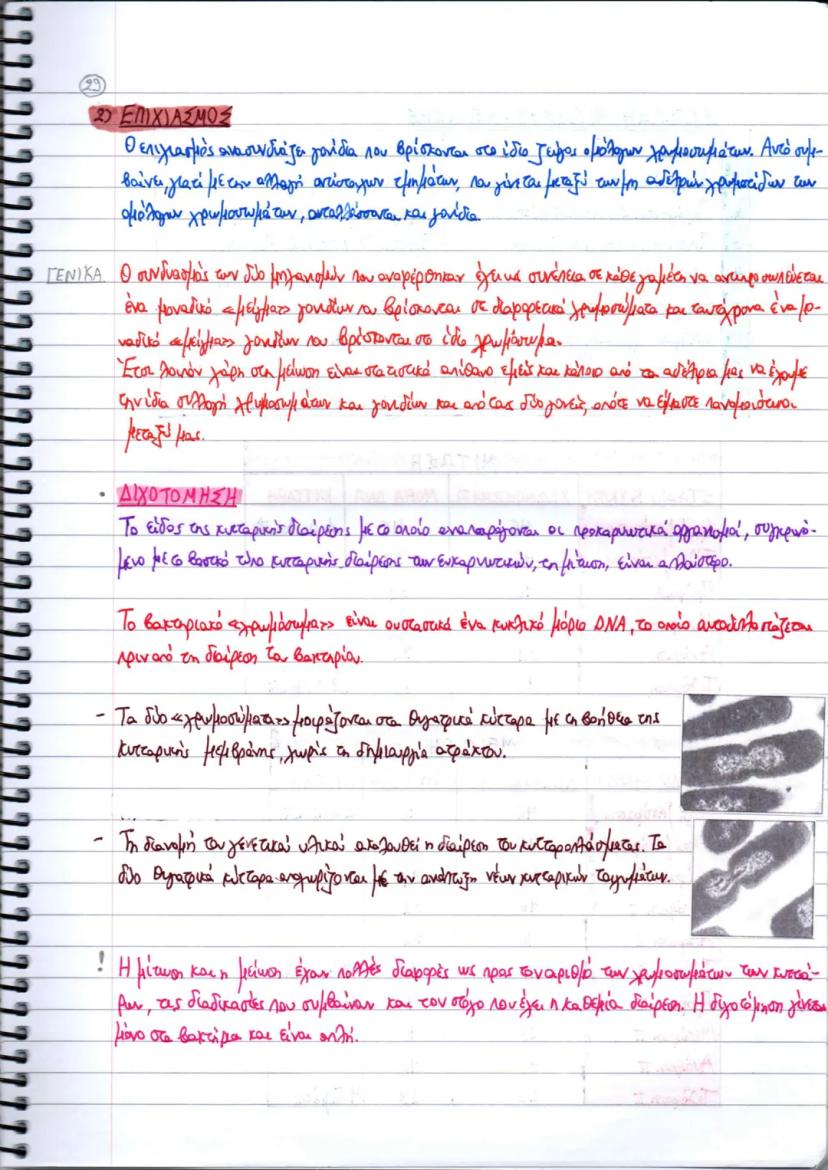 29
2) ΕΠΙΧΙΑΣΜΟΣ
Ο επιχιασμός ανασυνδυάζει γονίδια που βρίσκονται στο ίδιο ζεύγος ομόλογων χρωμοσωμάτων. Αυτό συμ-
βαίνει, γιατί με την αλλαγή αντίστοιχων τμημάτων, που γίνεται μεταξύ των μη αδελφών χρωματίδων των
ομόλογων χρωμοσωμάτων, ανταλλάσσονται και γονίδια.
ΓΕΝΙΚΑ
Ο συνδυασμός των δύο μηχανισμών που αναφέρθηκαν έχει ως συνέπεια σε κάθε γαμέτη να αντιπροσωπεύεται
ένα μοναδικό «μείγμα» γονιδίων που βρίσκονται σε διαφορετικά χρωμοσώματα και ταυτόχρονα ένα μο-
ναδικό «μείγμα» γονιδίων που βρίσκονται στο ίδιο χρωμόσωμα.
Έτσι λοιπόν χάρη στη μείωση είναι στατιστικά απίθανο εμείς και κάποιο από τα αδέλφια μας να έχουμε
την ίδια συλλογή χρωμοσωμάτων και γονιδίων και από τους δύο γονείς, οπότε να είμαστε πανομοιότυποι
μεταξύ μας.
• ΔΙΧΟΤΟΜΗΣΗ
Το είδος της κυτταρικής διαίρεσης με το οποίο αναπαράγονται οι προκαρυωτικοί οργανισμοί, συγκρινό-
μενο με το βασικό τύπο κυτταρικής διαίρεσης των ευκαρυωτικών, τη μίτωση, είναι απλούστερο.
Το βακτηριακό «χρωμόσωμα» είναι ουσιαστικά ένα κυκλικό μόριο DNA, το οποίο αυτοδιπλασιάζεται
πριν από τη διαίρεση του βακτηρίου.
- Τα δύο «χρωμοσώματα» μοιράζονται στα θυγατρικά κύτταρα με τη βοήθεια της
κυτταρικής μεμβράνης, χωρίς τη δημιουργία ατράκτου.
- Τη διανομή του γενετικού υλικού ακολουθεί η διαίρεση του κυτταροπλάσματος. Τα
δύο θυγατρικά κύτταρα αποχωρίζονται με την ανάπτυξη νέων κυτταρικών τοιχωμάτων.
! Η μίτωση και η μείωση έχουν πολλές διαφορές ως προς τον αριθμό των χρωμοσωμάτων των κυττά-
ρων, τις διαδικασίες που συμβαίνουν και τον στόχο που έχει η καθεμία διαίρεση. Η διχοτόμηση γίνεται
μόνο στα βακτήρια και είναι απλή.